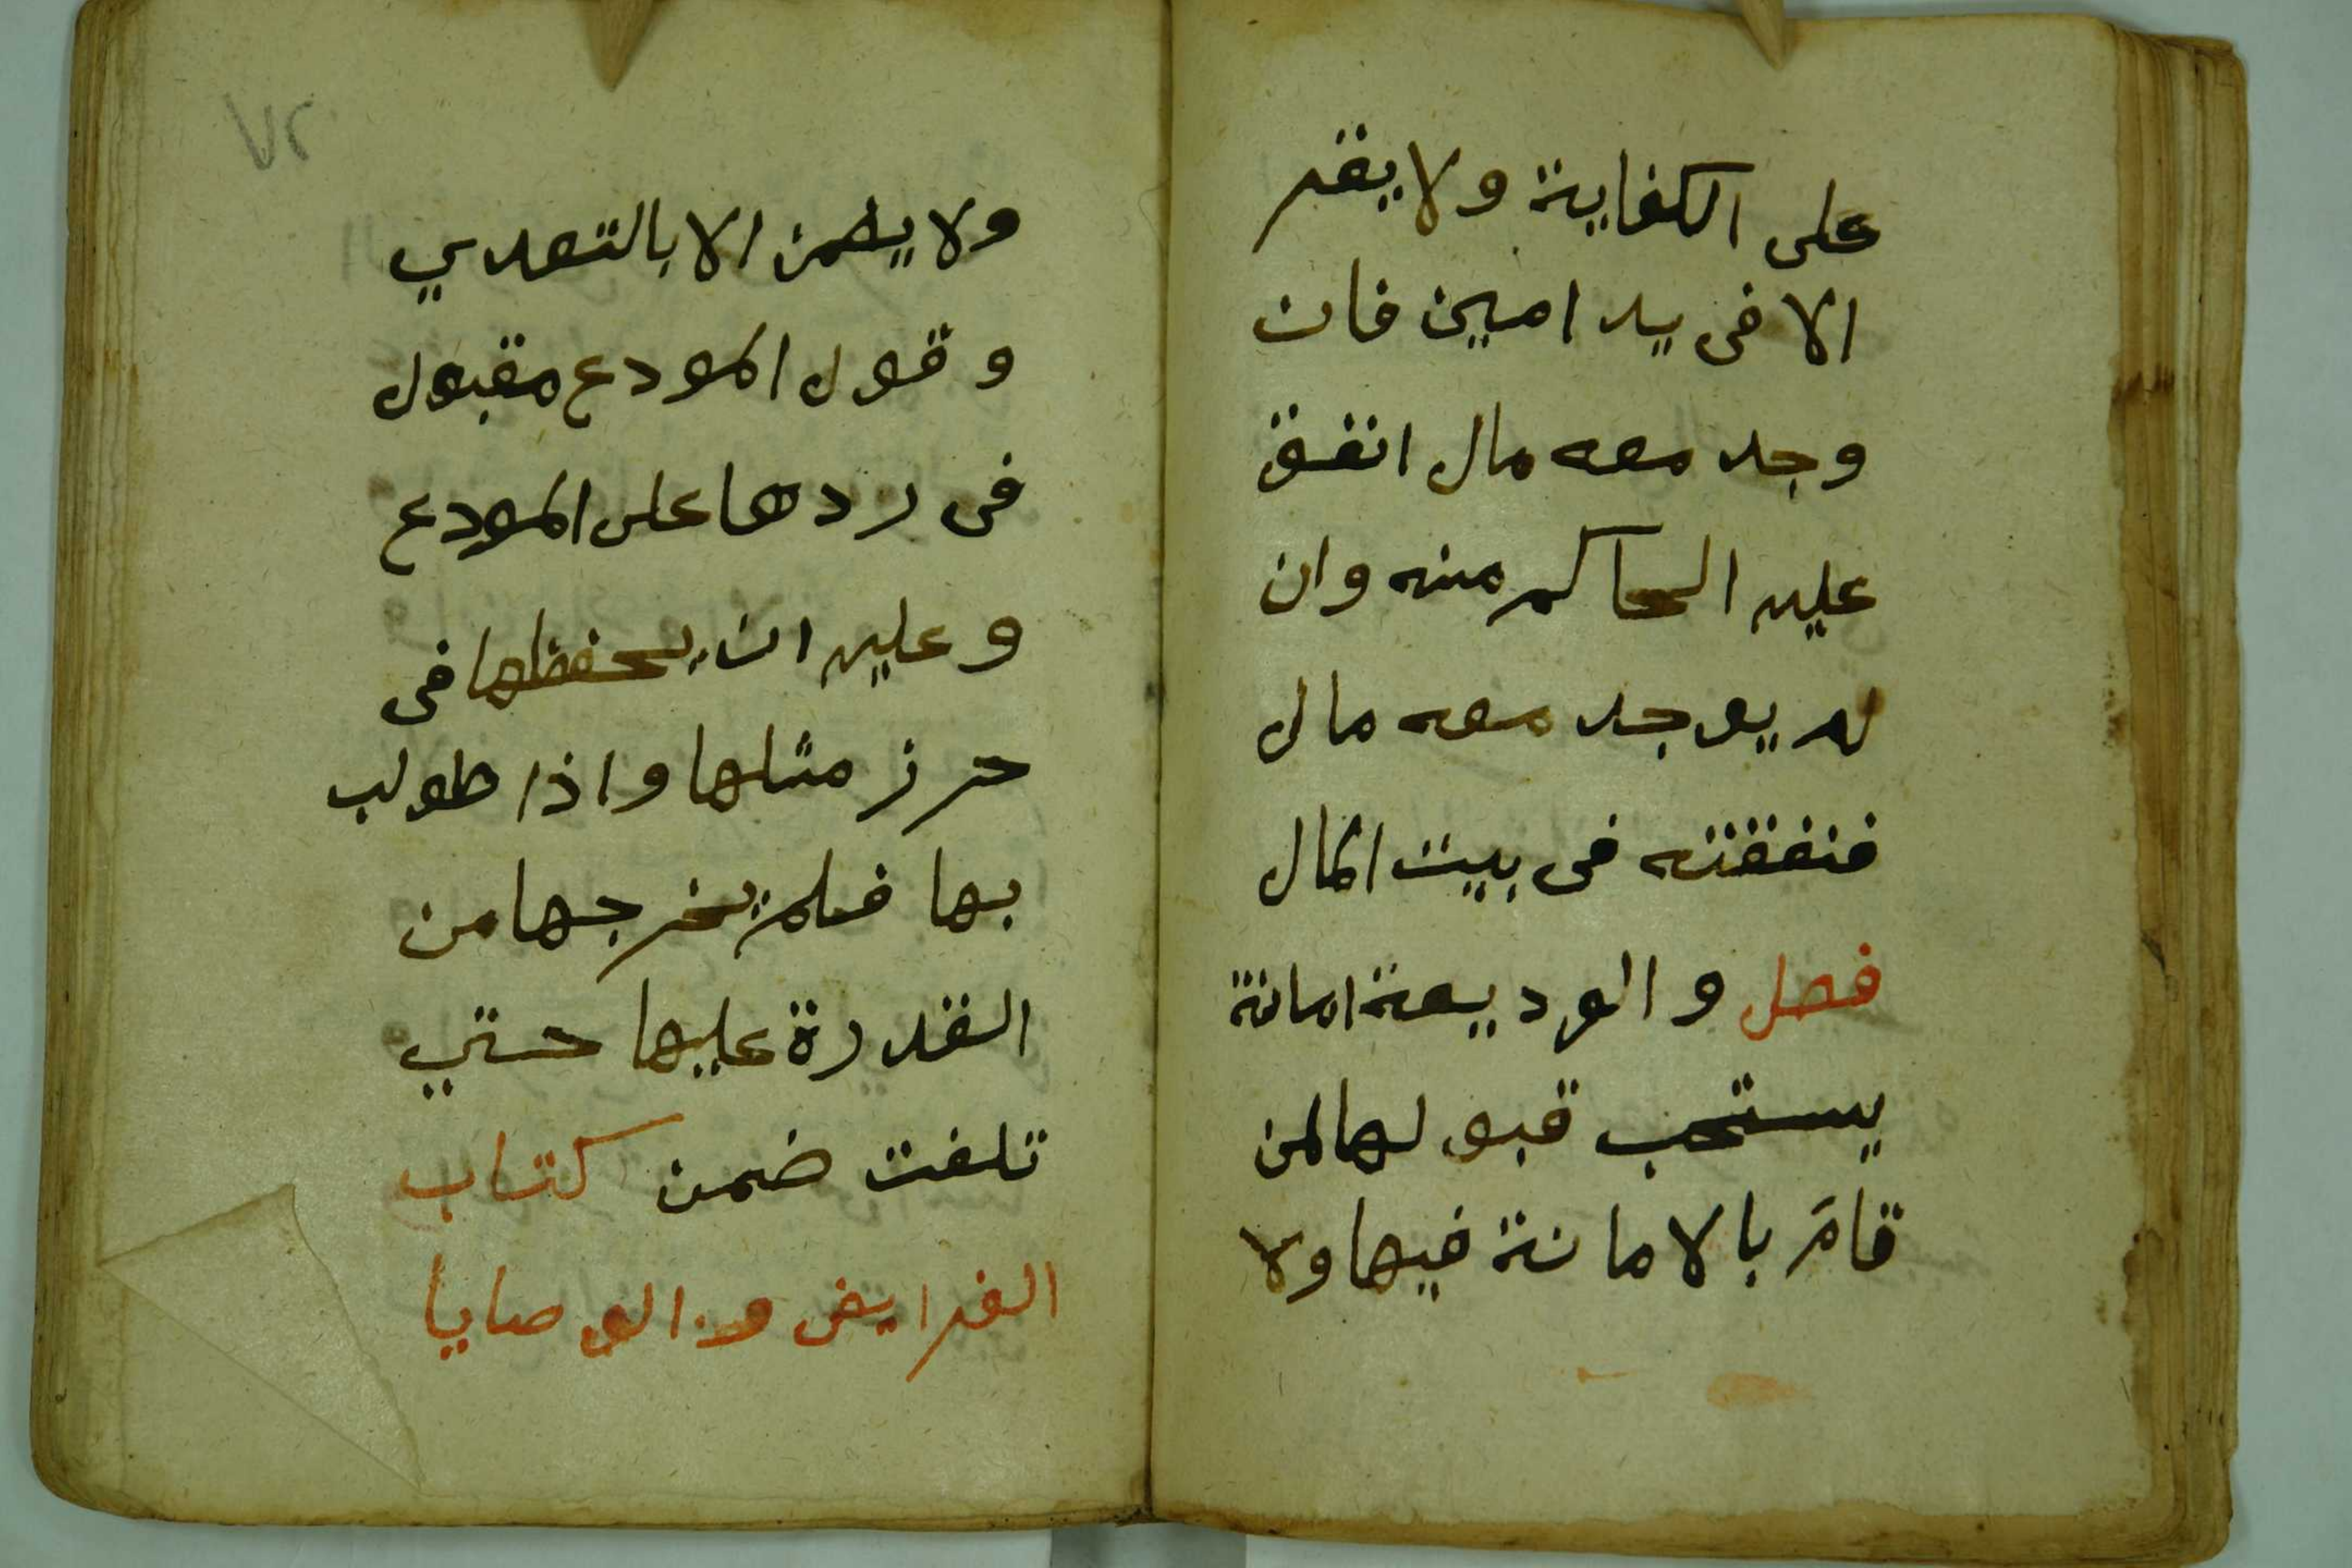 على الكفاية ولا يقر
الا فى يد امين فان
وجد معه مال انفق
عليه الحاكم منه وان
لم يوجد معه مال
فنفقته فى بيت المال
فصل والوديعة امانة
يستحب قبولها لمن
قام بالامانة فيها ولا
٧٢
ولا يضمن الا بالتعدي
وقول المودع مقبول
فى ردها على المودع
وعليه ان يحفظها فى
حرز مثلها واذا طولب
بها فلم يخرجها من
القدرة عليها حتي
تلفت ضمن كتاب
الفرايض والوصايا